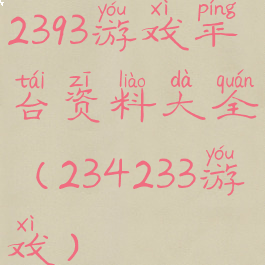 yóu xì píng
2393游戏平
tái zī liào dà quán
台资料大全
yóu
(234233游
xì
戏)